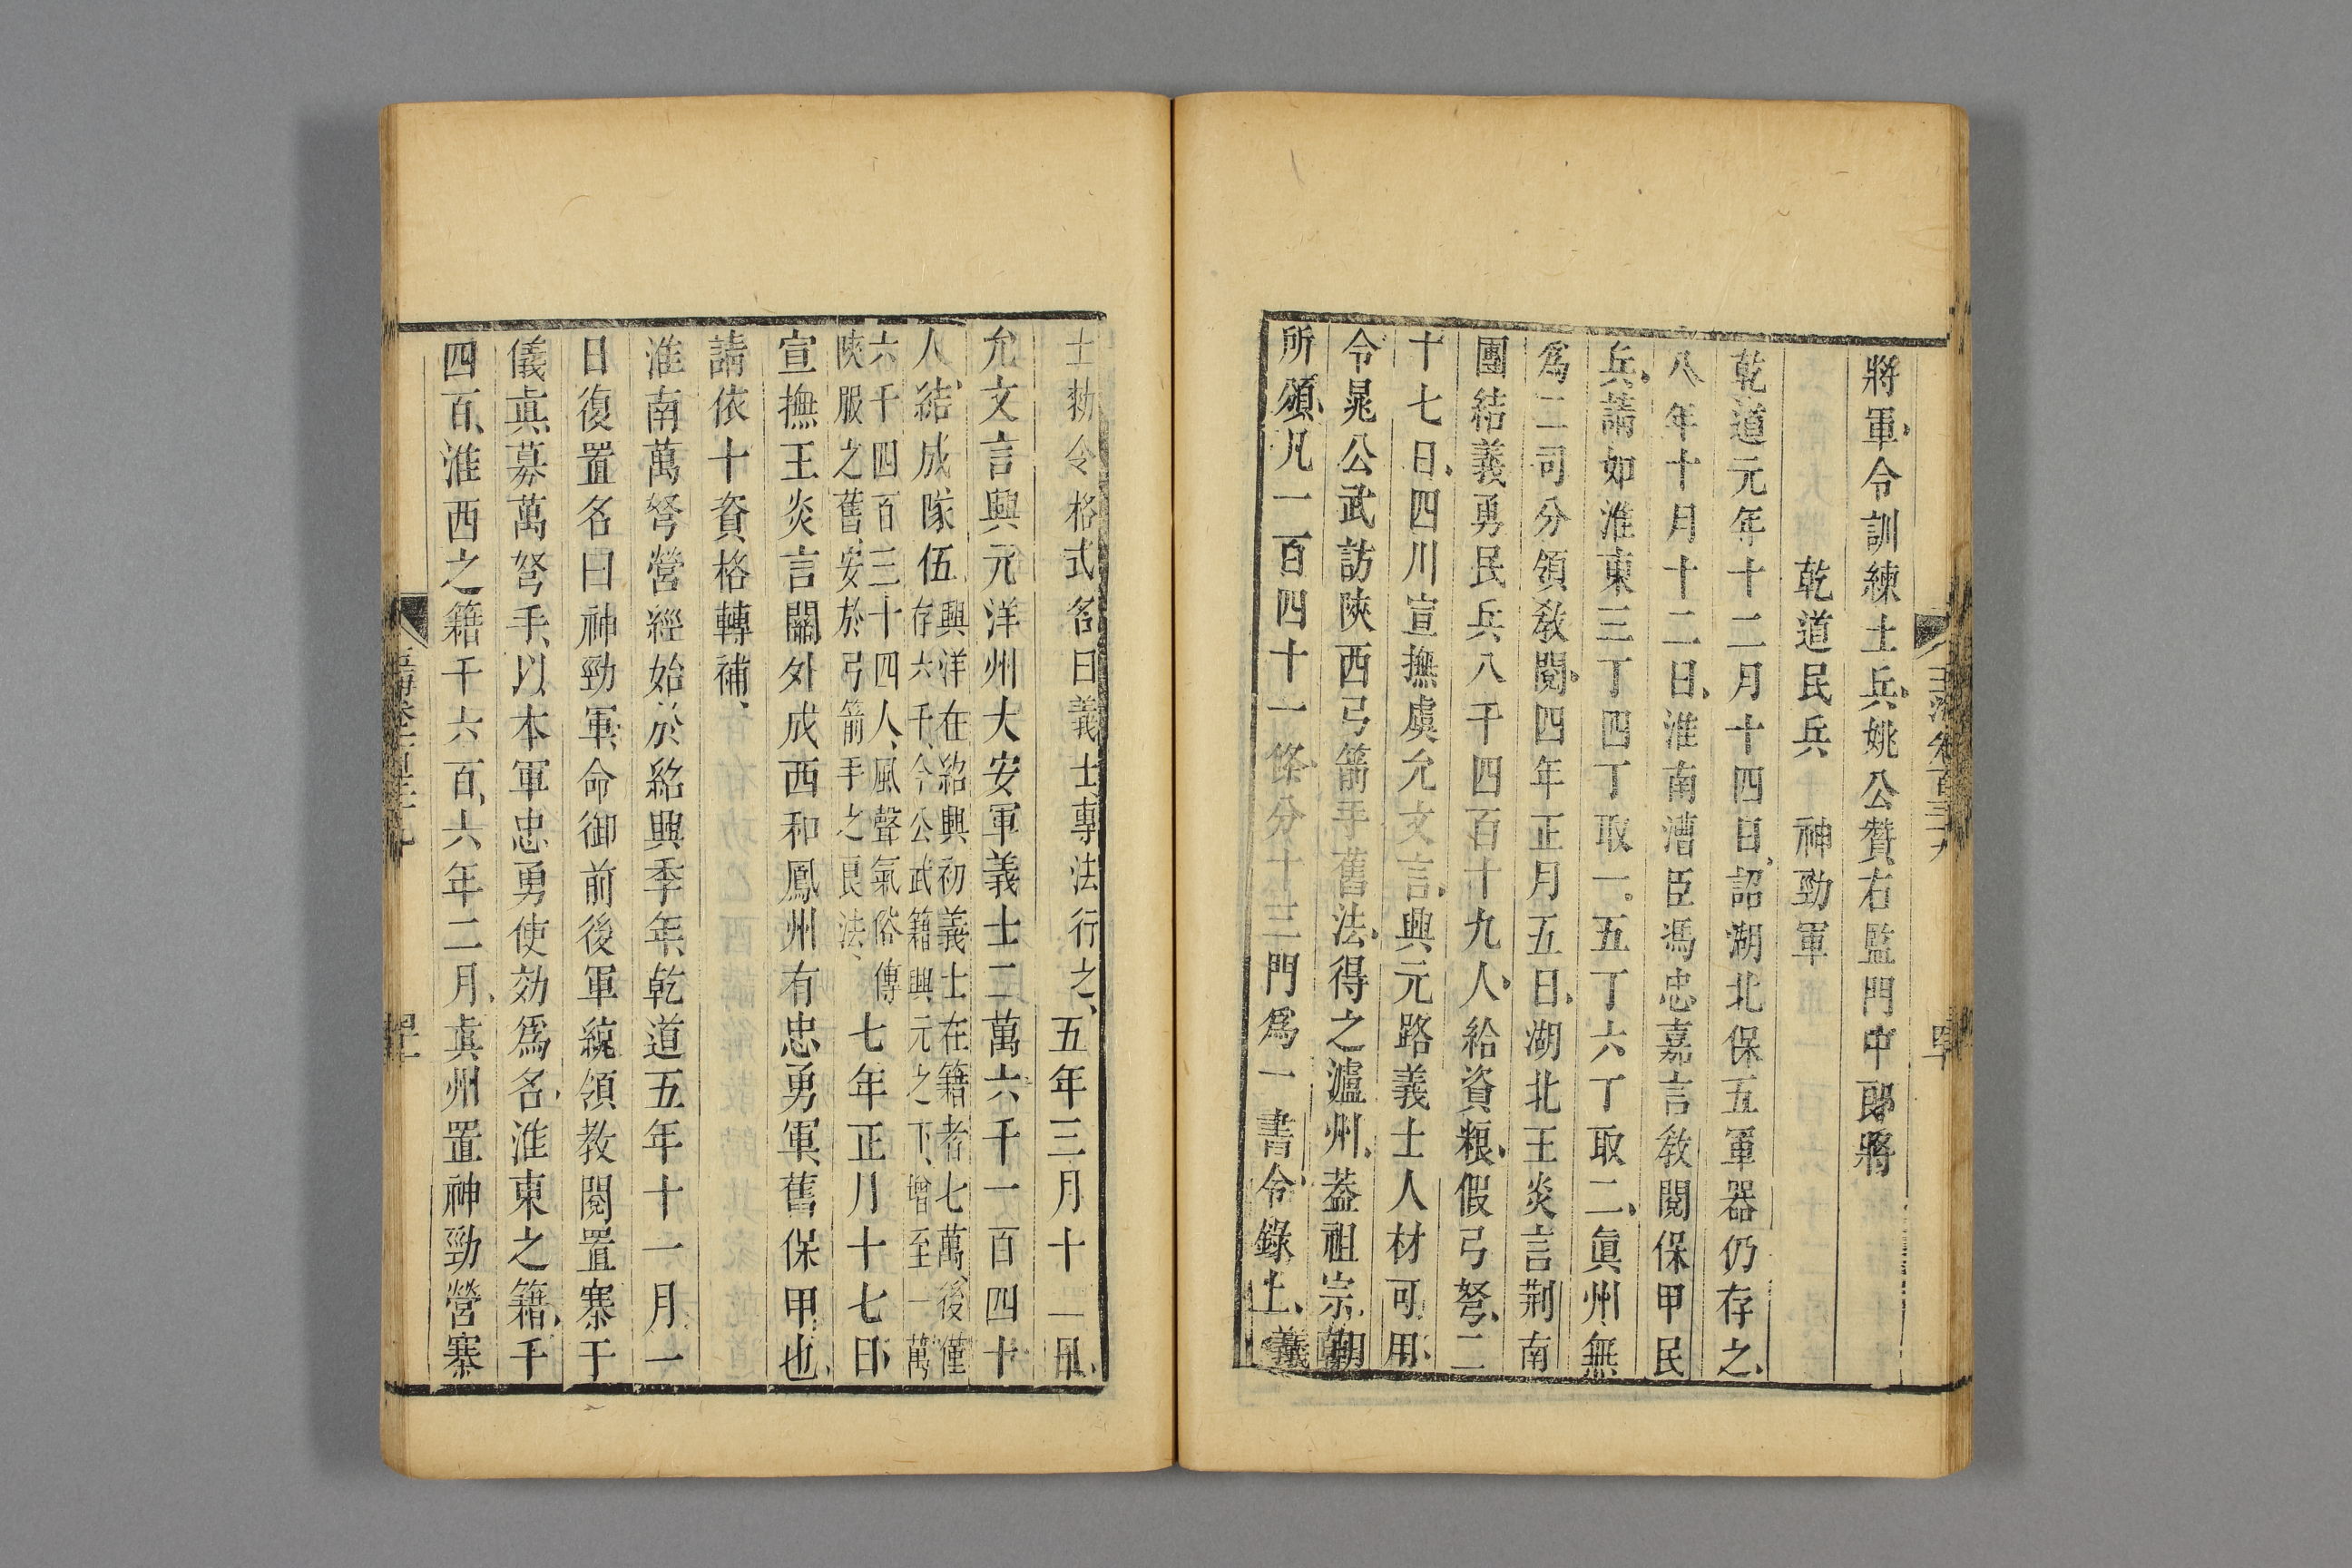 將軍令訓練土兵姚公贊右監門中郎將
乾道民兵　神勁軍
乾道元年十二月十四日詔湖北保五軍器仍存之
八年十月十二日淮南漕臣馮忠嘉言敎閱保甲民
兵請如淮東三丁四丁取一五丁六丁取二眞州無
爲二司分領敎閱四年正月五日湖北王炎言荆南
團結義勇民兵八千四百十九人給資粮假弓弩二
十七日四川宣撫虞允文言興元路義士人材可用
令晁公武訪陝西弓箭手舊法得之瀘州蓋祖宗朝
所頒凡一百四十一條分十三門爲一書令錄上義
士勑令格式名曰義士專法行之五年三月十一日
允文言興元洋州大安軍義士二萬六千一百四十
人結成隊伍興洋在紹興初義士在籍者七萬後僅
存六千今公武籍興元之下增至一萬
六千四百三十四人風聲氣俗傳
陝服之舊安於弓箭手之良法七年正月十七日
宣撫王炎言關外成西和鳳州有忠勇軍舊保甲也
請依十資格轉補
淮南萬弩營經始於紹興季年乾道五年十一月一
日復置名曰神勁軍命御前後軍統領教閱置寨于
儀眞募萬弩手以本軍忠勇使効爲名淮東之籍千
四百淮西之籍千六百六年二月眞州置神勁營寨